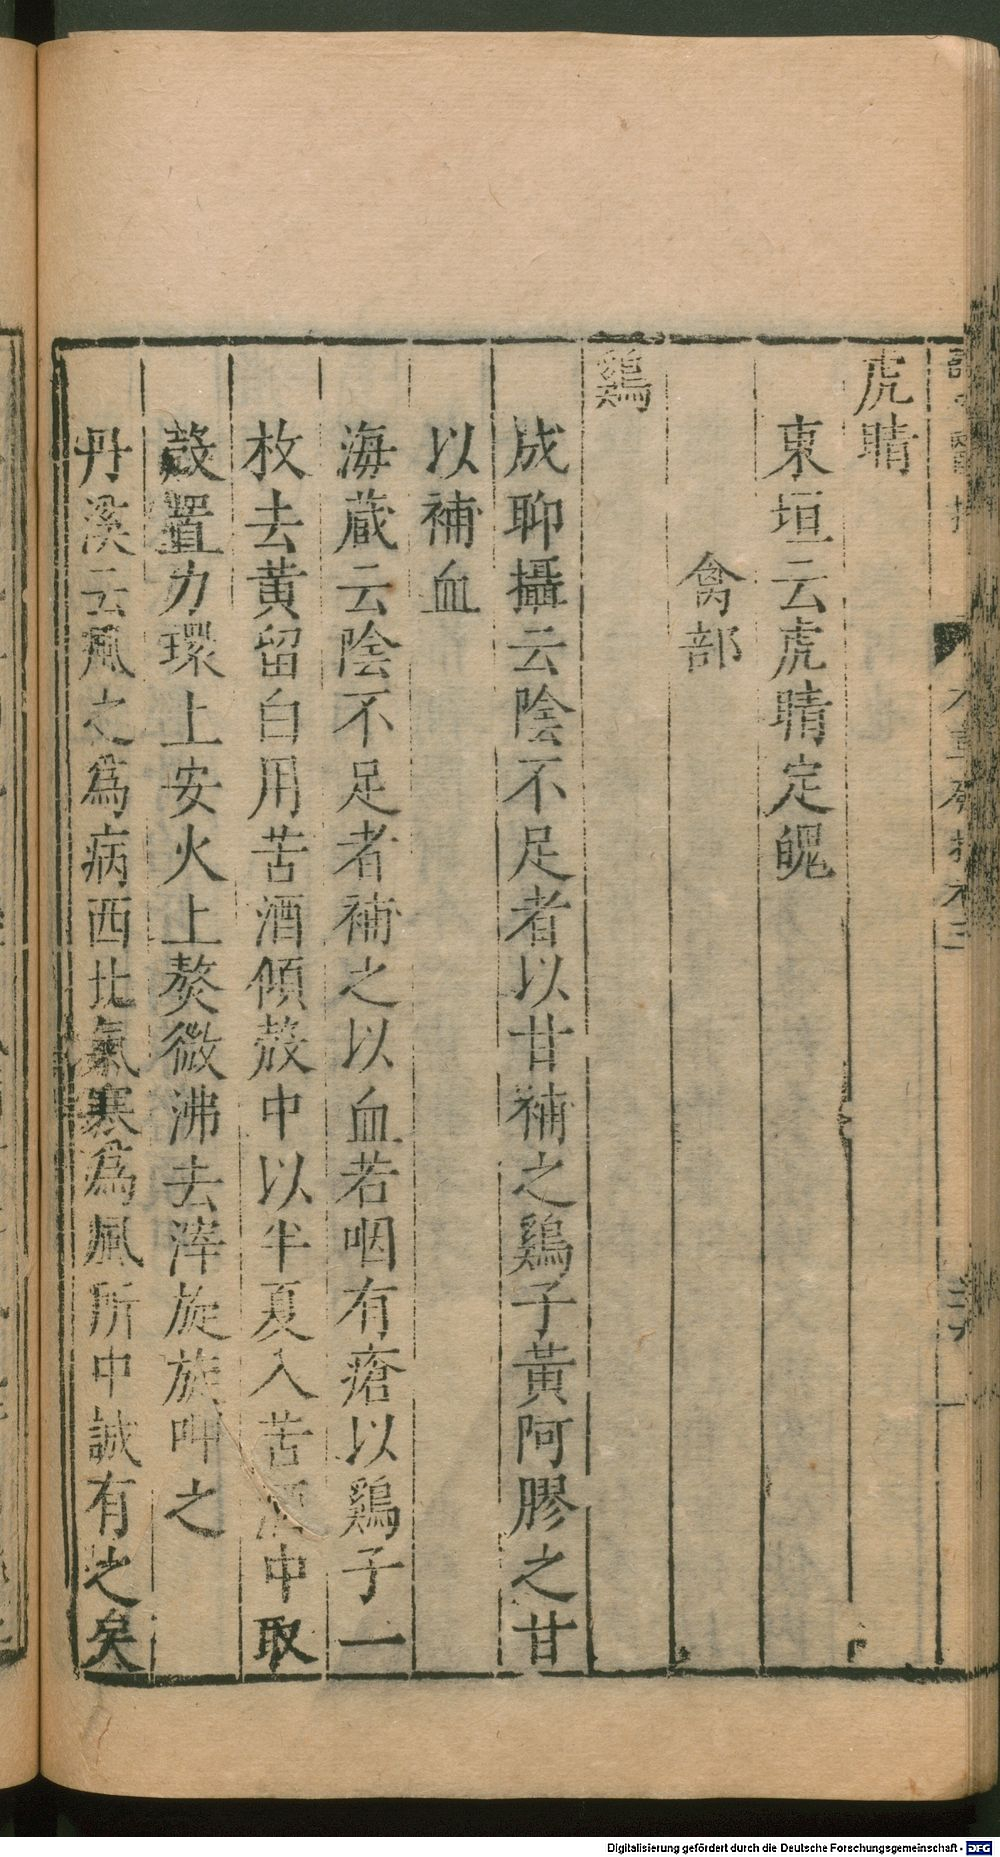 虎睛
東垣云虎睛定魄
禽部
鷄
成聊攝云陰不足者以甘補之鷄子黃阿膠之甘
以補血
海蔵云陰不足者補之以血若咽有瘡以鷄子一
枚去黄留白用苦酒傾殼中以半夏入苦酒中取
殼置刀環上安火上熬微沸去滓旋旋呷之
丹溪云風之為病西北氣寒為風所中誠有之矣
Digitalisierung gefördert durch die Deutsche Forschungsgemeinschaft - DFG